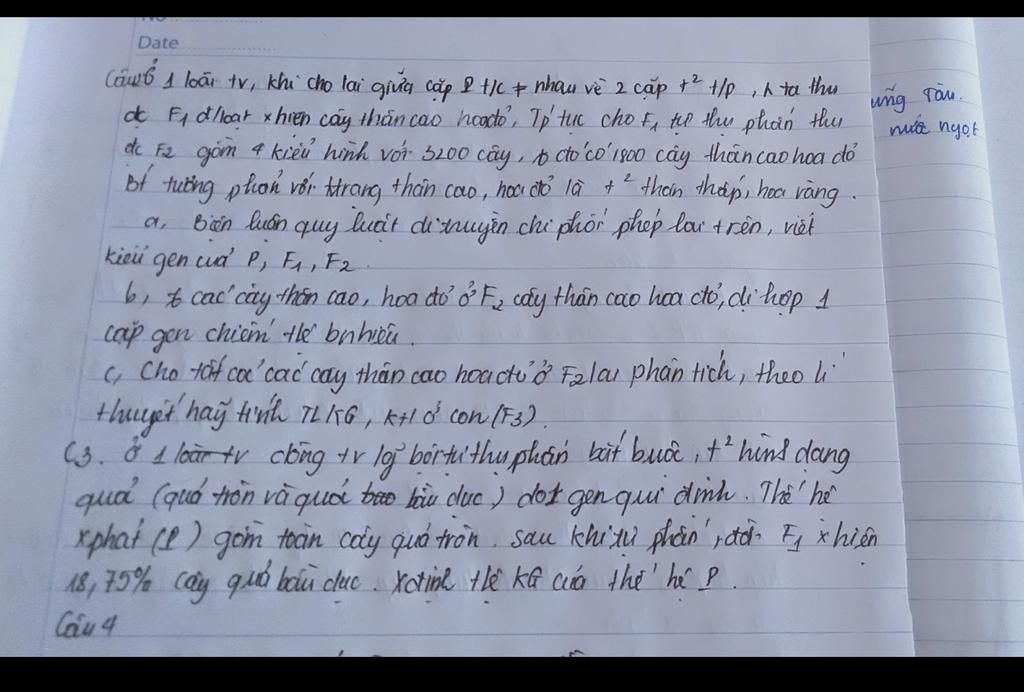 No
Date
Câu 6 1 loài tv, khi cho lai giữa cặp P t/c ≠ nhau về 2 cặp t² t/p, n ta thu
đc F1 đ/loạt xhiện cây thân cao hoa đỏ, Tp tục cho F1 tự thụ phấn thu
đc F2 gồm 4 kiểu hình với 3200 cây, to đó có 1800 cây thân cao hoa đỏ
Bt tương phản với ttrạng thân cao, hoa đỏ là t² thân thấp, hoa vàng.
a, Biện luận quy luật di truyền chi phối phép lai trên, viết
kiểu gen của P, F1, F2.
b, to các cây thân cao, hoa đỏ ở F2 cây thân cao hoa đỏ, dị hợp 1
cặp gen chiếm tlệ bnhiêu.
c, Cho tất cả các cây thân cao hoa đỏ ở F2 lai phân tích, theo lí
thuyết hãy tính TLKG, KH ở con (F3).
C3. Ở 1 loài tv công tv lg bởi tự thụ phấn bắt buộc, t² hình dạng
quả (quả tròn và quả bầu dục) do 1 gen qui định. Thế hệ
xphát (P) gồm toàn cây quả tròn. sau khi tự phấn, đời F1 xhiện
18,75% cây quả bầu dục. Xđịnh tlệ KG của thế hệ P.
Câu 4
ũng Tàu.
nước ngọt